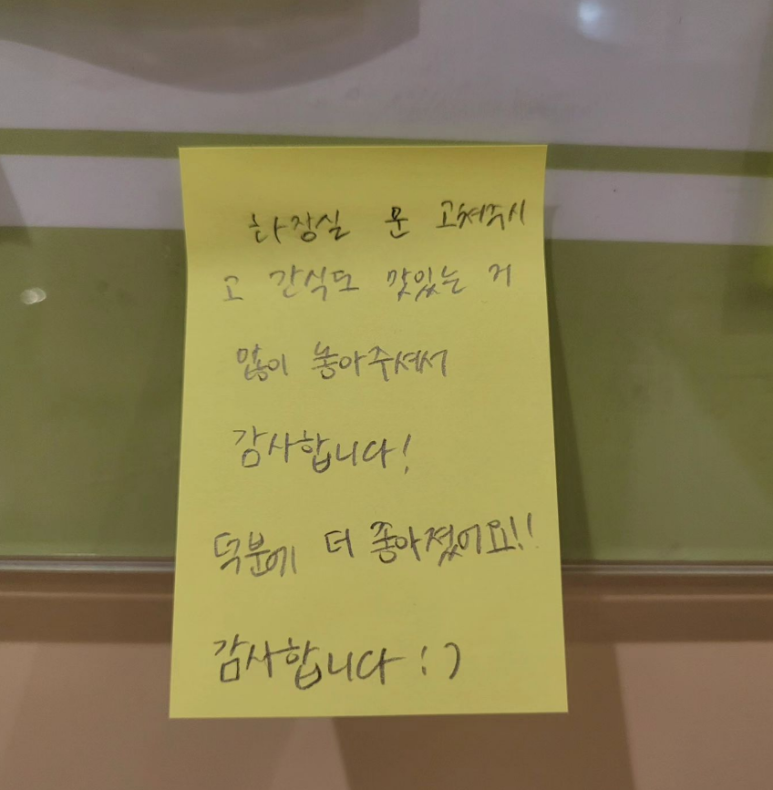 화장실 문 고쳐주시
고 간식도 맛있는 거
많이 놓아주셔서
감사합니다!
덕분에 더 좋아졌어요!!
감사합니다 :)